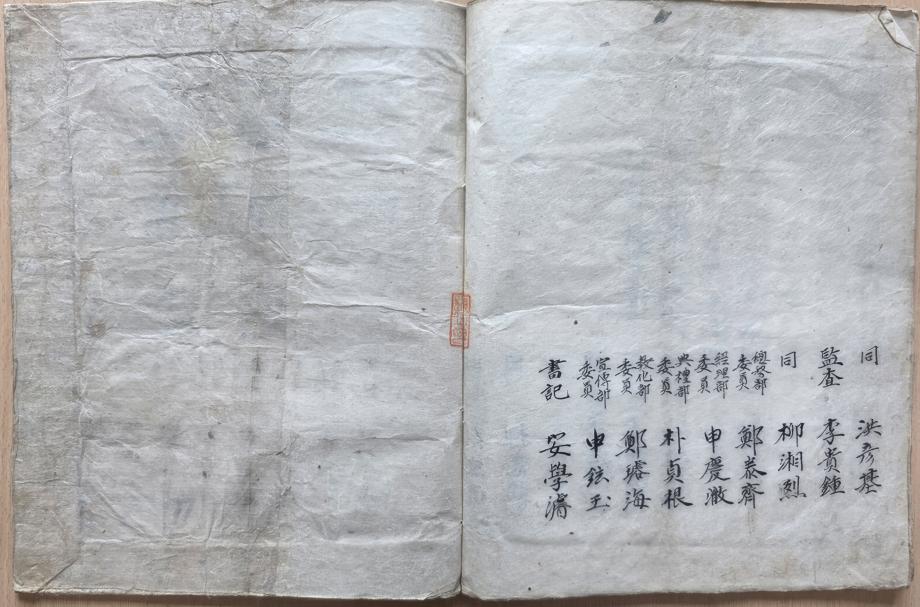 同 洪彦基
監査 李貴鍾
同 柳湘烈
總務部委員 鄭泰齊
經理部委員 申慶澈
典禮部委員 朴貞根
教化部委員 鄭璿海
宣傳部委員 申鉉玉
書記 安學濬